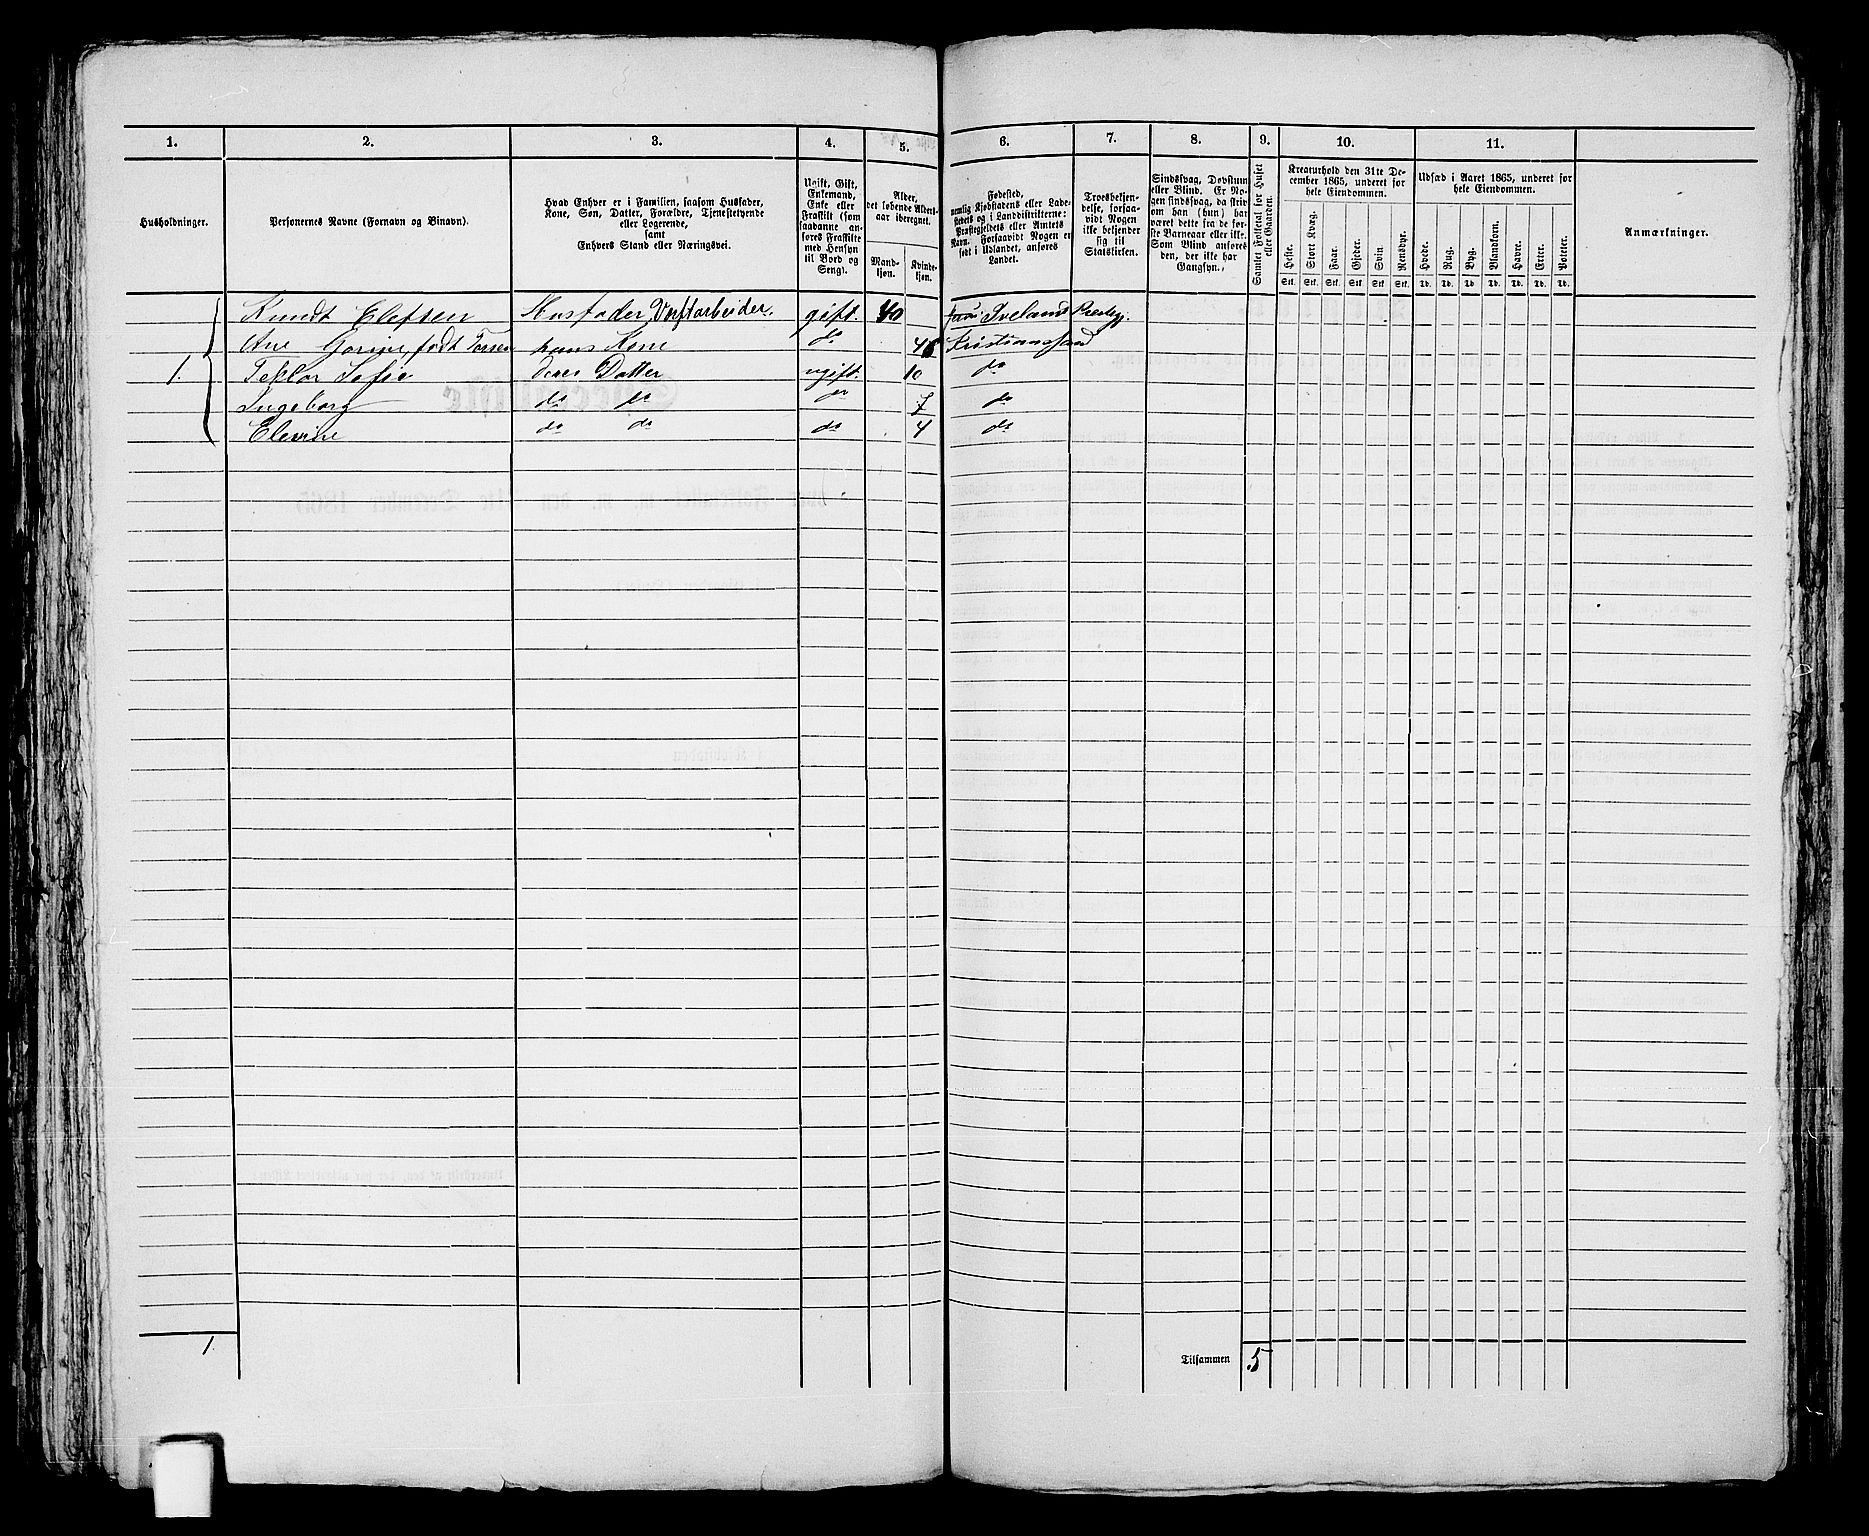 1. 2. 3. 4. 5. 6. 7. 8. 9. 10. 11.
Husholdninger.
Personernes Navne (Fornavn og Binavn).
Hvad Enhver er i Familien, saasom Husfader, Kone, Søn, Datter, Forældre, Tjenestetyende eller Logerende, samt Enhvers Stand eller Næringsvei.
Ugift, Gift, Enkemand, Enke eller Fraskilt (som saadanne anføres Fraskilte med Hensyn til Bord og Seng).
Alder, det løbende Alders-aar iberegnet.
Mand-kjøn. Kvinde-kjøn.
Fødested, nemlig Kjøbstadens eller Lade-stedets og i Landdistrikterne: Præstegjeldets eller Amtets Navn. Forsaavidt Nogen er født i Udlandet, anføres Landet.
Troesbekjen-delse, forsaa-vidt Nogen ikke bekjender sig til Statskirken.
Sindssvag, Døvstum eller Blind. Er Nogen sindssvag, da skrives om han (hun) har været dette fra de første Barneaar eller ikke. Som Blind anføres den, der ikke har Gangsyn.
Samlet Folketal for Huset eller Gaarden.
Kreaturhold den 31te December 1865, underet for hele Eiendommen.
Heste. Stort Kvæg. Faar. Gjeder. Svin. Rensdyr.
Stk. Stk. Stk. Stk. Stk. Stk.
Udsæd i Aaret 1865, underet for hele Eiendommen.
Hvede. Rug. Byg. Blandkorn. Havre. Erter. Poteter.
Td. Td. Td. Td. Td. Td. Td.
Anmærkninger.
Knudt Elefsen Husfader, Værftarbeider. gift. 40 Ivelands Præstegj.
1. Ane Gorine, født Tarsen hans Kone do 45 Kristianssand
Teklar Sofie deres Datter ugift. 10 do
Ingeborg do do do 7 do
Elevine do do do 4 do
1.
Tilsammen 5